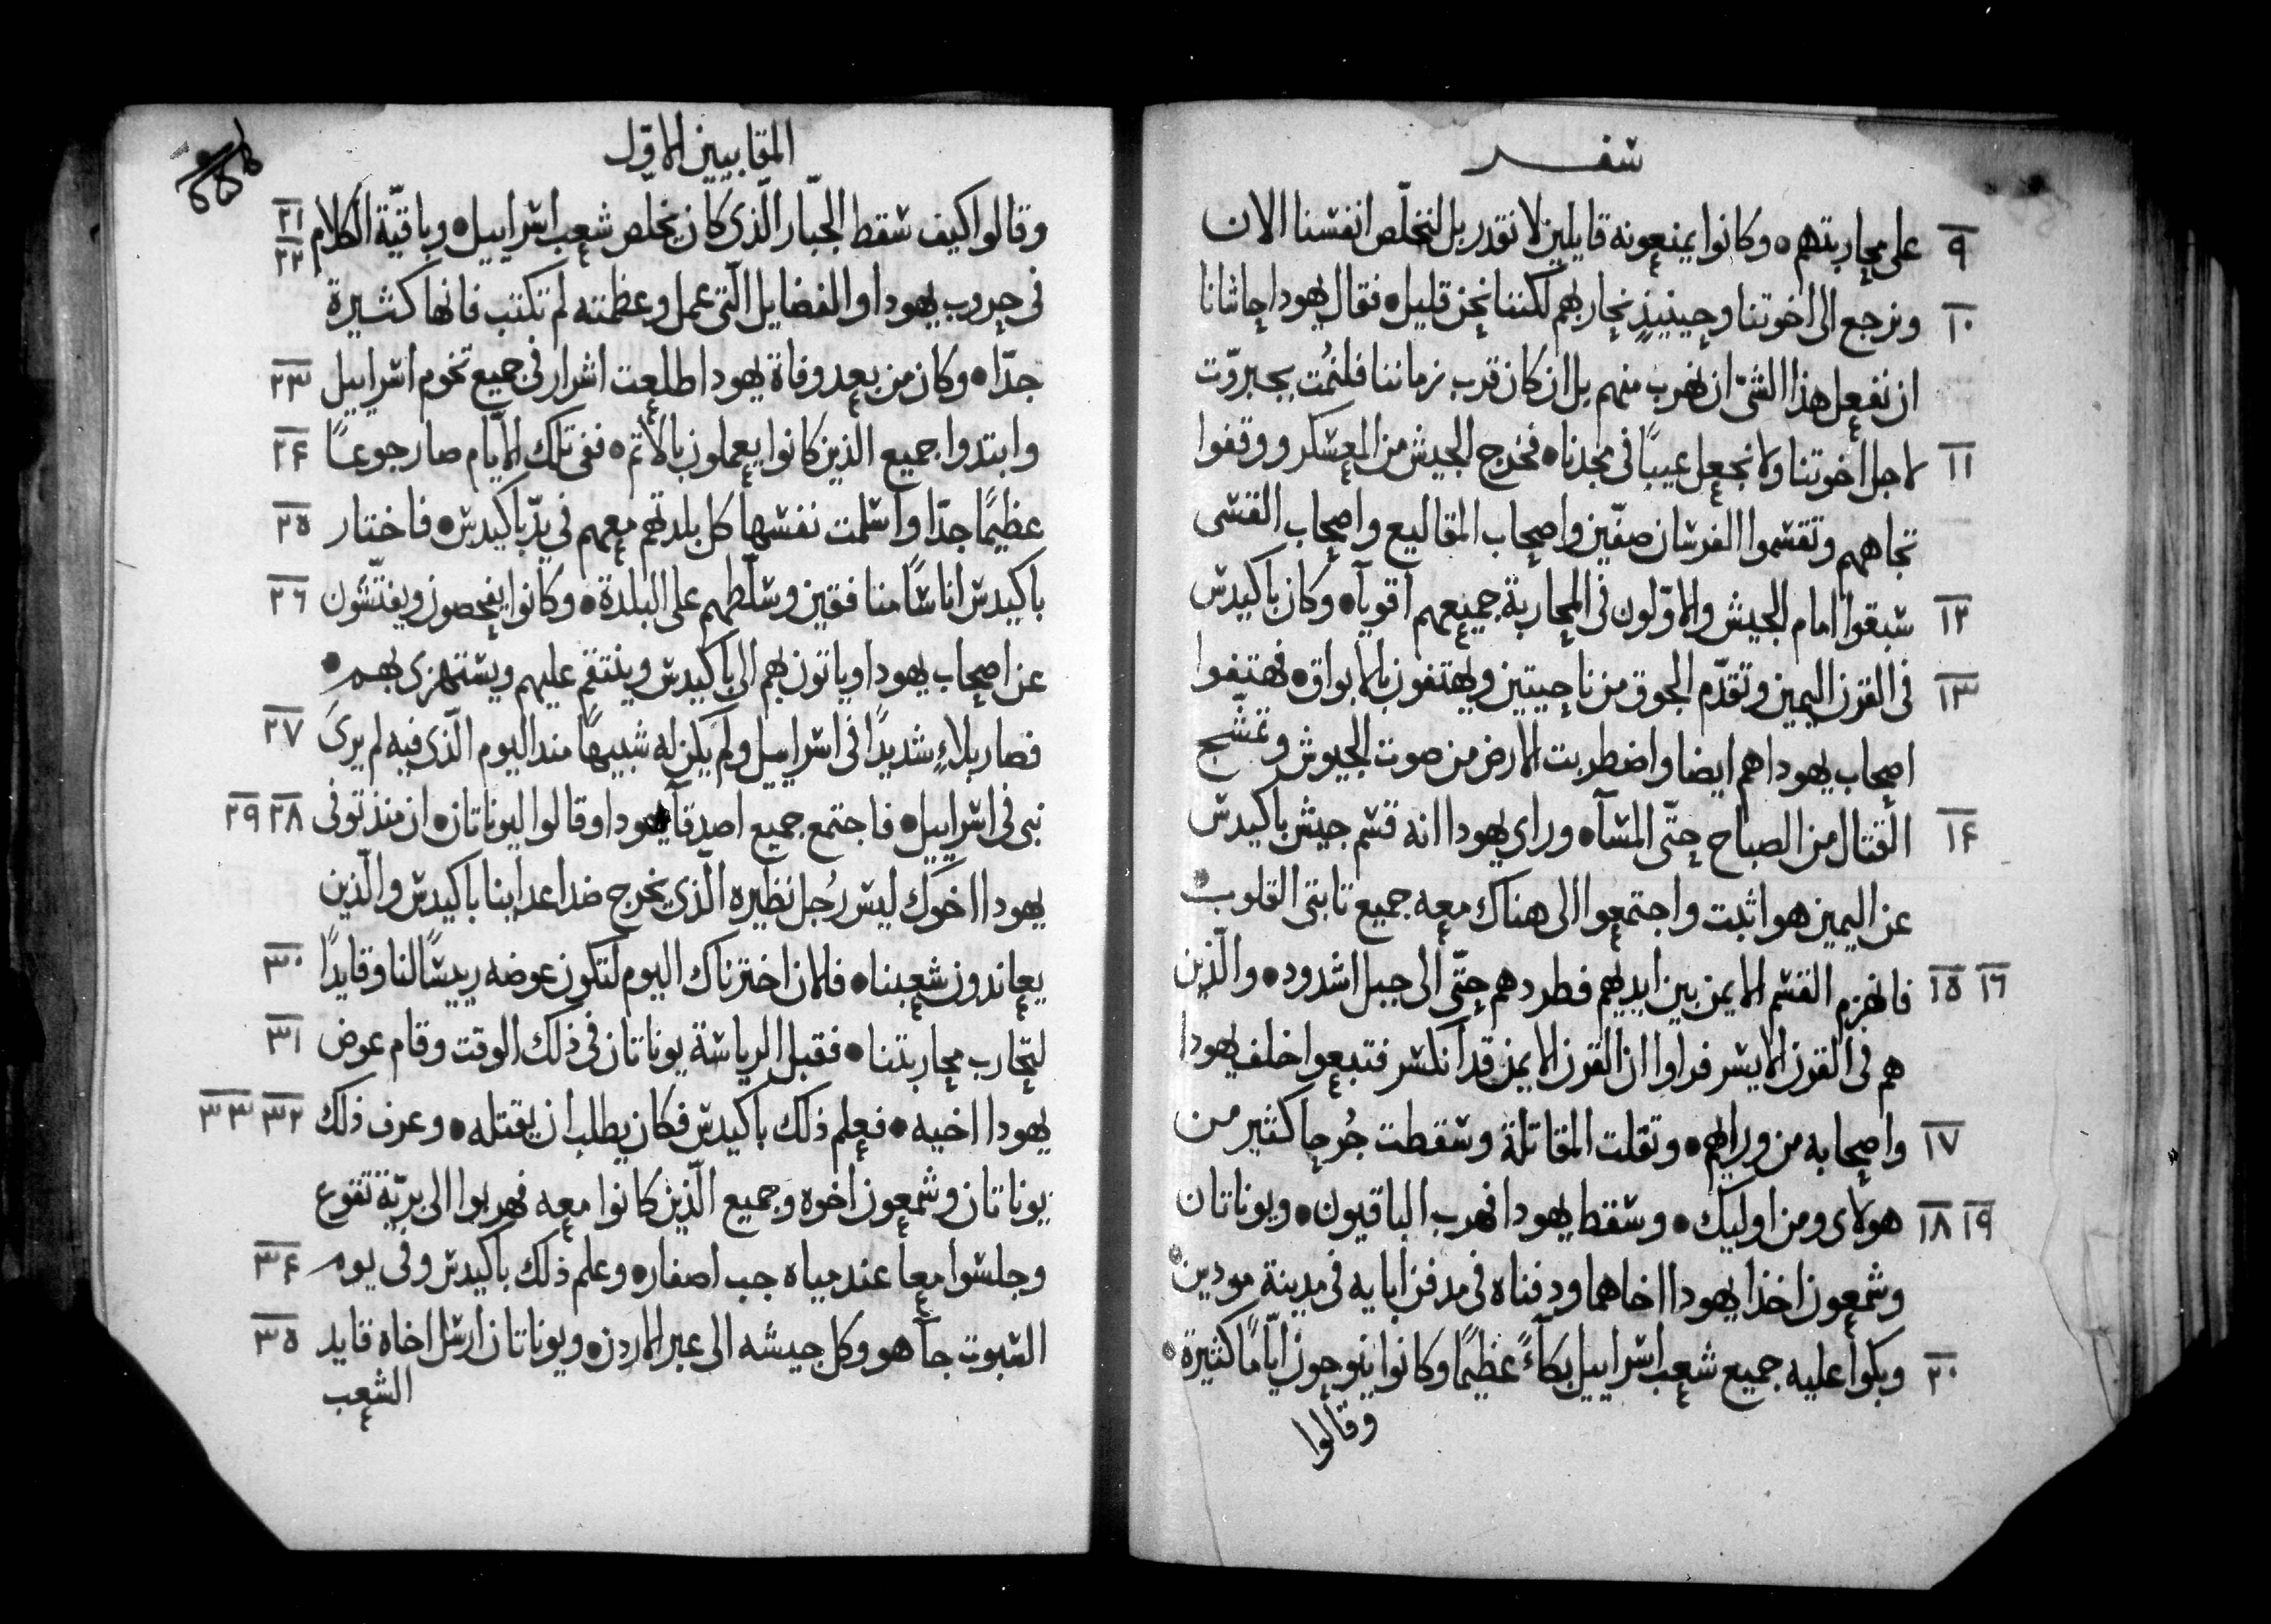 سفر
٩ على محاربتهم ۞ وكانوا يمنعونه قايلين لا نقدر بل لنخلّص انفسنا الان
١٠ ونرجع الى اخوتنا وحينيذٍ نحاربهم لكننا نحن قليل ۞ فقال يهودا حاشانا
ان نفعل هذا الشيّ ان نهرب منهم بل ان كان قرب زماننا فلنمُت بجبروّت
١١ لاجل اخوتنا ولا نجعل عيبًا في مجدنا ۞ فخرج الجيش من المعسكر ووقفوا
تجاههم وتقسموا الفرسان صفّين واصحاب المقاليع واصحاب القسى
١٢ سبقوا امام الجيش والاوّلون في المحاربة جميعهم اقويآ ۞ وكان باكيدس
١٣ في القرن اليمين وتقدّم الجوق من ناحيتين ويهتفون بالابواق ۞ فهتفوا
اصحاب يهودا هم ايضا واضطربت الارض من صوت الجيوش
١٤ القتال من الصباح حتّى المسآ ۞ وراى يهودا انه قسم جيش باكيدس
عن اليمين هو اثبت واجتمعوا الى هناك معه جميع ثابتى القلوب ۞
١٥ ١٦ فانهزم القسم الايمن بين ايديهم فطردهم حتّى الى جبل اشدود ۞ والّذين
هم في القرن الايسر فراوا ان القرن الايمن قد انكسر فتبعوا خلف يهودا
١٧ واصحابه من ورايهم ۞ وثقلت المقاتلة وسقطت جُرحا كثير من
١٨ ١٩ هولاى ومن اوليك ۞ وسقط يهودا فهرب الباقيون ۞ ويوناتان
وشمعون اخذا يهودا اخاهما ودفناه في مدفن ابايه في مدينة مودين ۞
٢٠ وبكوا عليه جميع شعب اسراييل بكآءً عظيمًا وكانوا ينوحون ايّامًا كثيرة ۞
وقالوا
المقابيين الاوّل
٢١ ٢٢ وقالوا كيف سقط الجبّار الّذى كان يخلّص شعب اسراييل ۞ وباقيّة الكلام
في حروب يهودا والفضايل الّتى عمل وعظمته لم تكتب فانها كثيرة
٢٣ جدّا ۞ وكان من بعد وفاة يهودا طلعت اشرار في جميع تخوم اسراييل
٢٤ وابتدوا جميع الّذين كانوا يعملون بالاثم ۞ ففي تلك الايّام صار جوعًا
٢٥ عظيمًا جدّا واسلمت نفسها كل بلدتهم معهم في يدّ باكيدس ۞ فاختار
٢٦ باكيدس اناسًا منافقين وسلّطهم على البلدة ۞ وكانوا يفحصون ويفتّشون
عن اصحاب يهودا وياتون بهم الى باكيدس وينتقم عليهم ويستهزى بهم ۞
٢٧ فصار بلاءٍ شديدًا في اسراييل ولم يكن له شبيهًا مند اليوم الّذى فيه لم يرىَ
٢٨ ٢٩ نبى في اسراييل ۞ فاجتمع جميع اصدقآ يهودا وقالوا ليوناتان ۞ ان منذ توفى
يهودا اخوك ليس رُجل نظيره الّذى يخرج ضد اعداينا باكيدس والّذين
٣٠ يعاندون شعبنا ۞ فلان اخترناك اليوم لتكون عوضه رييسًا لنا وقايدًا
٣١ لتحارب محاربتنا ۞ فقبل الرياسة يوناتان في ذلك الوقت وقام عوض
٣٢ ٣٣ يهودا اخيه ۞ فعلم ذلك باكيدس فكان يطلب ان يقتله ۞ وعرف ذلك
يوناتان وشمعون اخوه وجميع الّذين كانوا معه فهربوا الى بريّة تقوع
٣٤ وجلسوا معا عند مياه جب اصفار ۞ وعلم ذلك باكيدس وفي يوم
٣٥ السبوت جآ هو وكل جيشه الى عبر الاردن ۞ ويوناتان ارسل اخاه قايد
الشعب